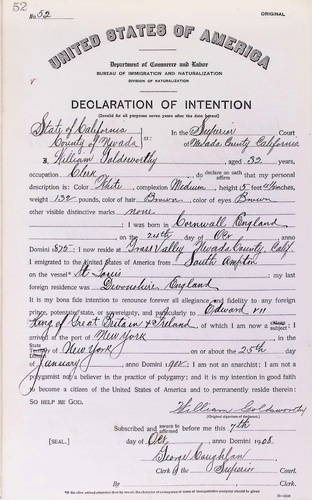 52
No. 52
ORIGINAL
UNITED STATES OF AMERICA
Department of Commerce and Labor
BUREAU OF IMMIGRATION AND NATURALIZATION
DIVISION OF NATURALIZATION
DECLARATION OF INTENTION
(Invalid for all purposes seven years after the date hereof)
State of California
County of Nevada ss:
In the Superior Court
of Nevada County California
I, William Goldsworthy aged 32 years,
occupation Clerk, do declare on oath affirm that my personal
description is: Color White, complexion Medium, height 5 feet inches,
weight 132 pounds, color of hair Brown, color of eyes Brown
other visible distinctive marks none
I was born in Cornwall England
on the 24th day of Oct, anno
Domini 1875; I now reside at Grass Valley, Nevada County, Calif.
I emigrated to the United States of America from South Ampton
on the vessel St Louis; my last
foreign residence was Devonshire England
It is my bona fide intention to renounce forever all allegiance and fidelity to any foreign
prince, potentate, state, or sovereignty, and particularly to Edward VII
King of Great Britain & Ireland, of which I am now a subject; I
arrived at the port of New York, in the
State of New York on or about the 25th day
of January, anno Domini; I am not an anarchist; I am not a
polygamist nor a believer in the practice of polygamy; and it is my intention in good faith
to become a citizen of the United States of America and to permanently reside therein:
SO HELP ME GOD.
William Goldsworthy
(Original signature of declarant.)
Subscribed and sworn to affirmed before me this 7th
[SEAL.] day of Oct, anno Domini 1908.
George Coughlan
Clerk of the Superior Court.
By, Clerk.